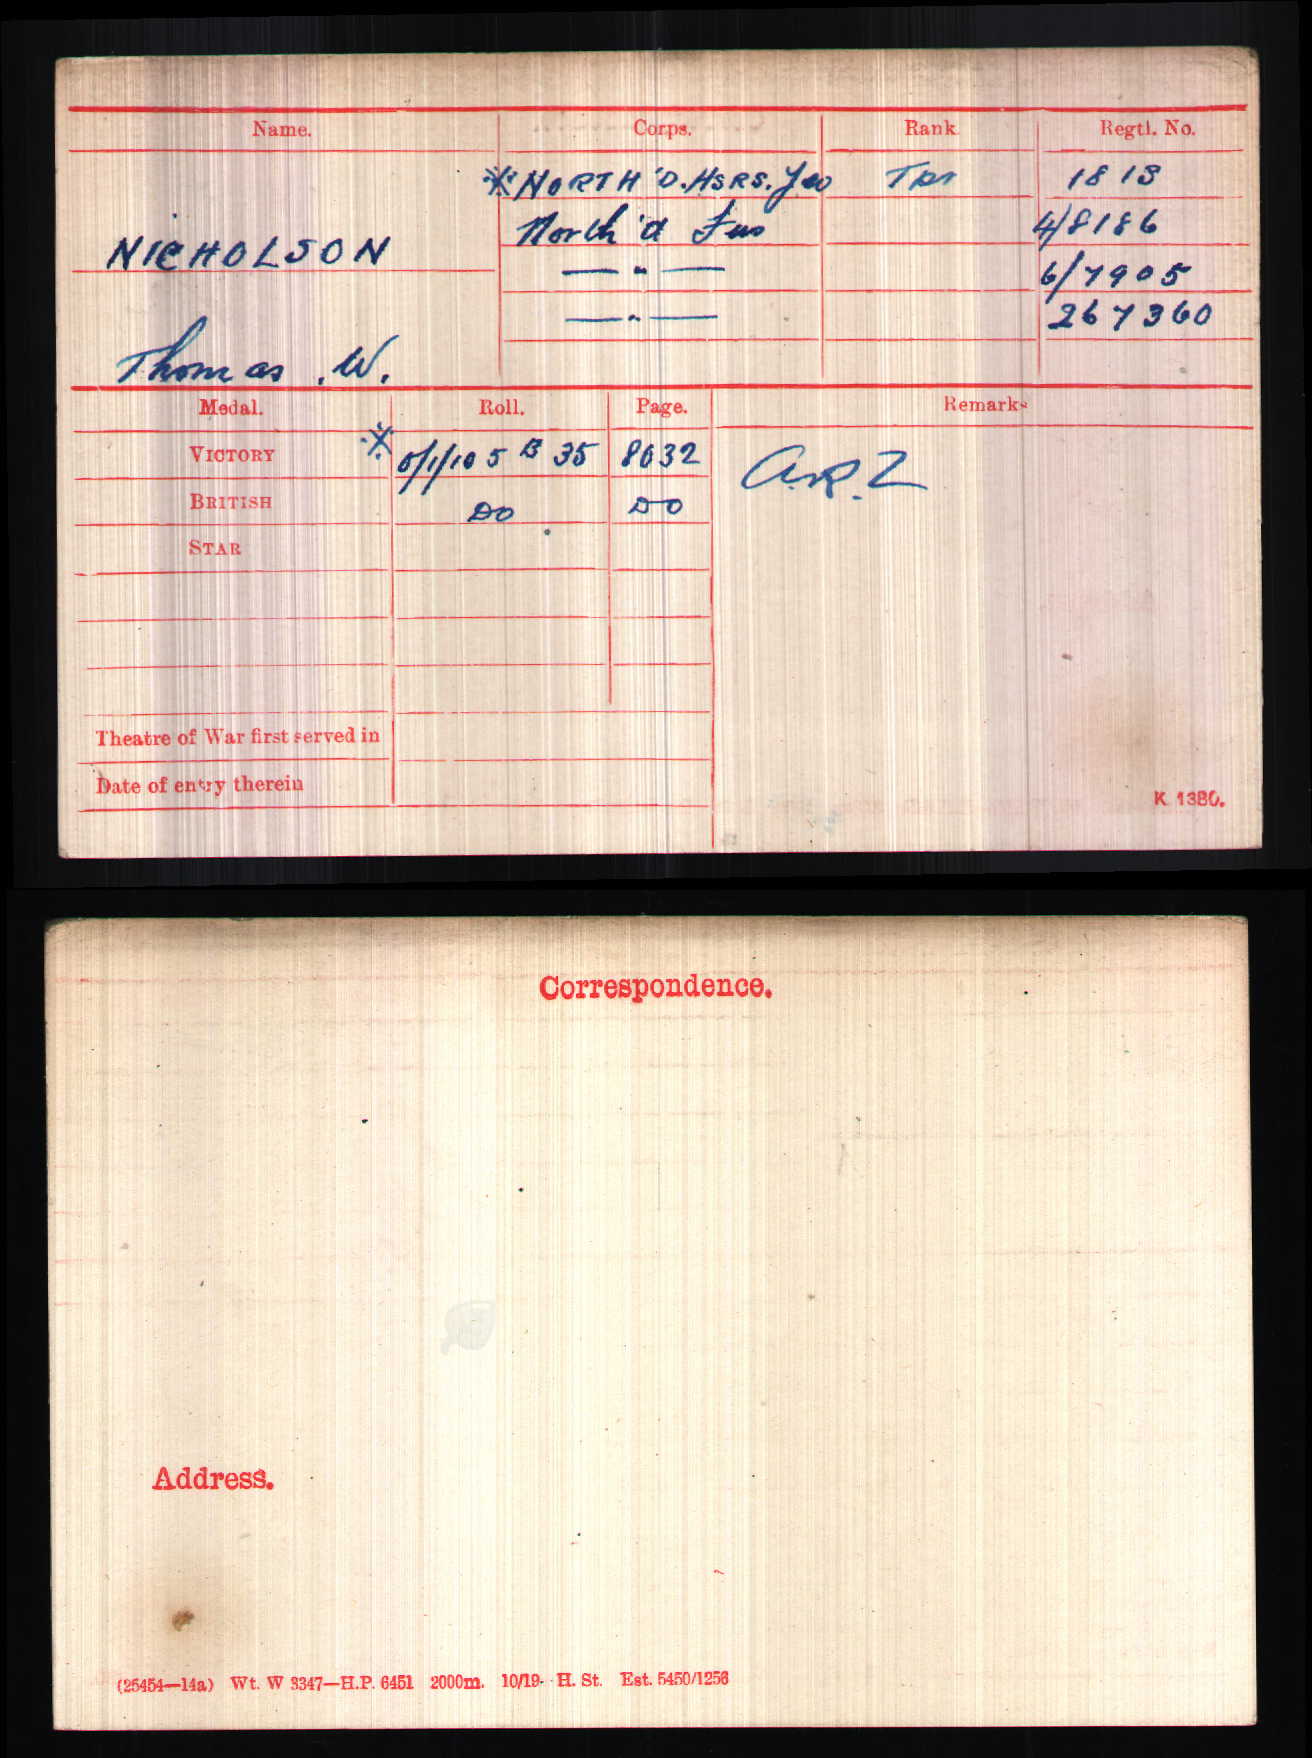 Name. Corps. Rank Regtl. No.
※NORTH'D.HSRS.Yeo Tpr 1813
NICHOLSON North'd Fus 4/8186
—"— 6/7905
—"— 267360
Thomas .W.
Medal. Roll. Page. Remarks
VICTORY ※ O/1/10 5 B 35 8032
BRITISH DO DO
A.R.Z
STAR
Theatre of War first served in
Date of entry therein
K 1380.
Correspondence.
Address.
(25454—14a) Wt. W 3347—H.P. 6451 2000m. 10/19- H. St. Est. 5450/1256